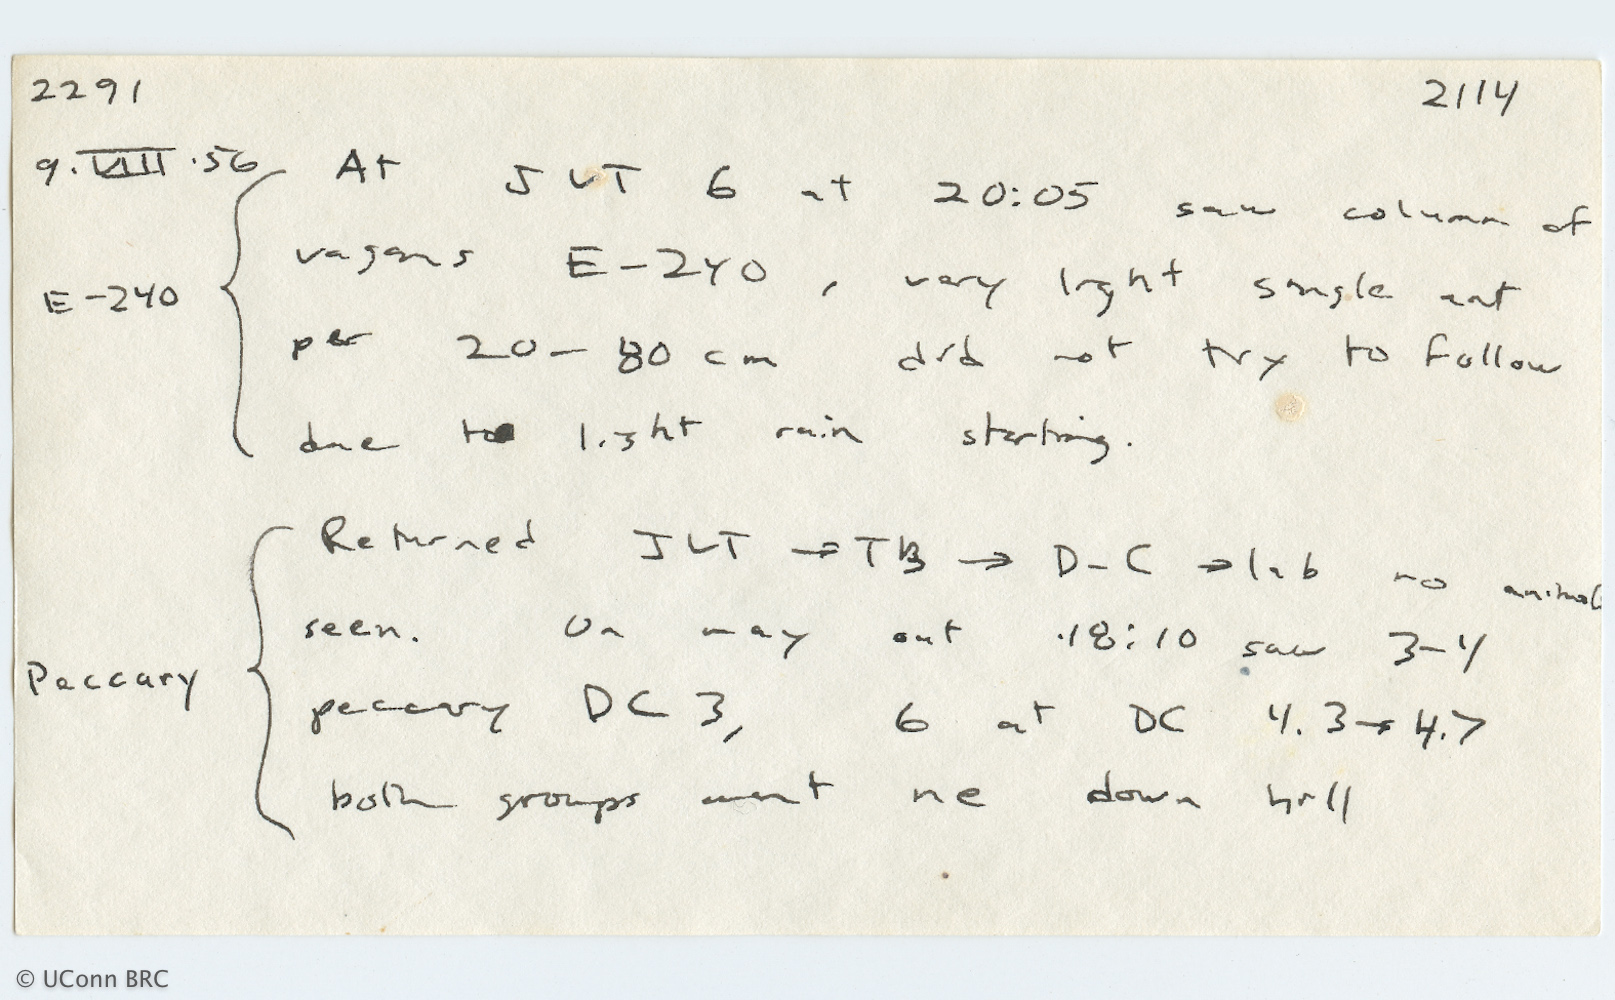 2291 2114
9.VIII.56 At JVT 6 at 20:05 saw column of
vagans E-240, very light single ant
E-240
per 20-80 cm did not try to follow
due to light rain starting.
Returned JVT → TB → D-C → lab no animals
seen. On way out 18:10 saw 3-4
Peccary
peccary DC 3, 6 at DC 4.3→4.7
both groups went ne down hill
© UConn BRC